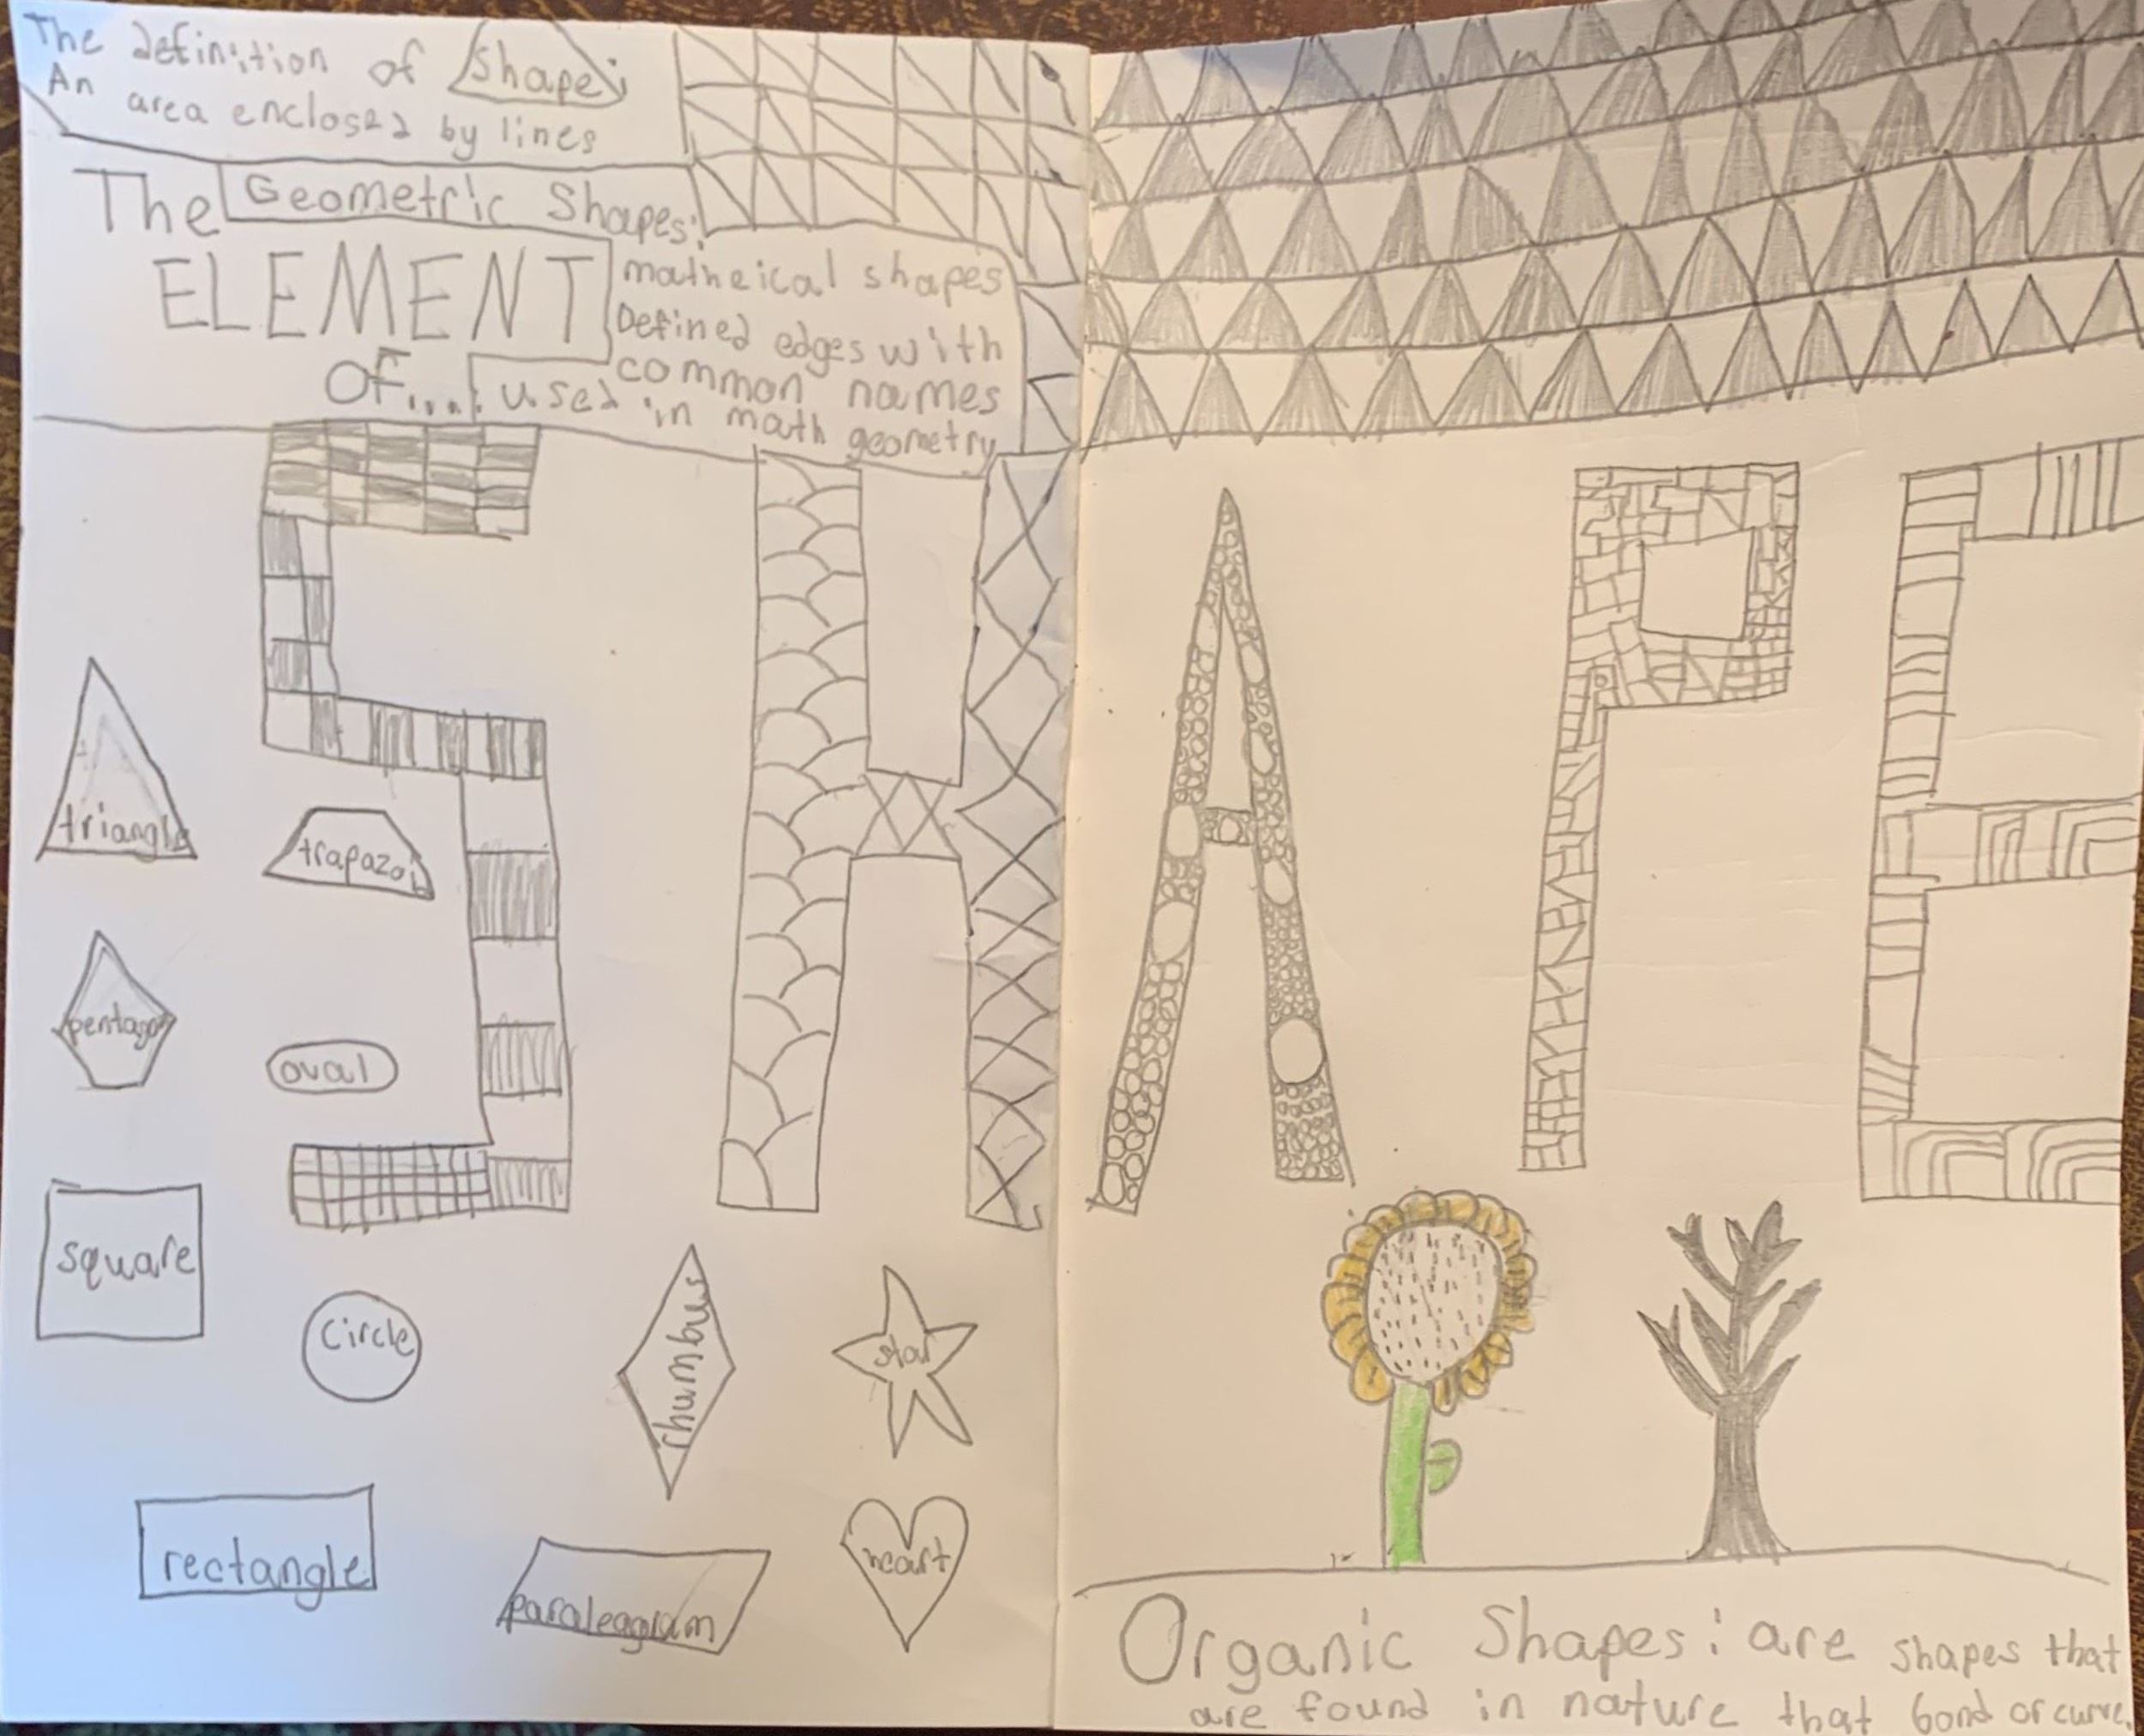 The definition of Shape:
An area enclosed by lines
The Geometric Shapes:
ELEMENT
of....
matheical shapes
Defined edges with
common names
used in math geometry
SHAPE
triangle
trapazoid
pentagon
oval
square
circle
rhumbus
star
rectangle
paraleagram
heart
Organic Shapes: are shapes that
are found in nature that bond or curve.